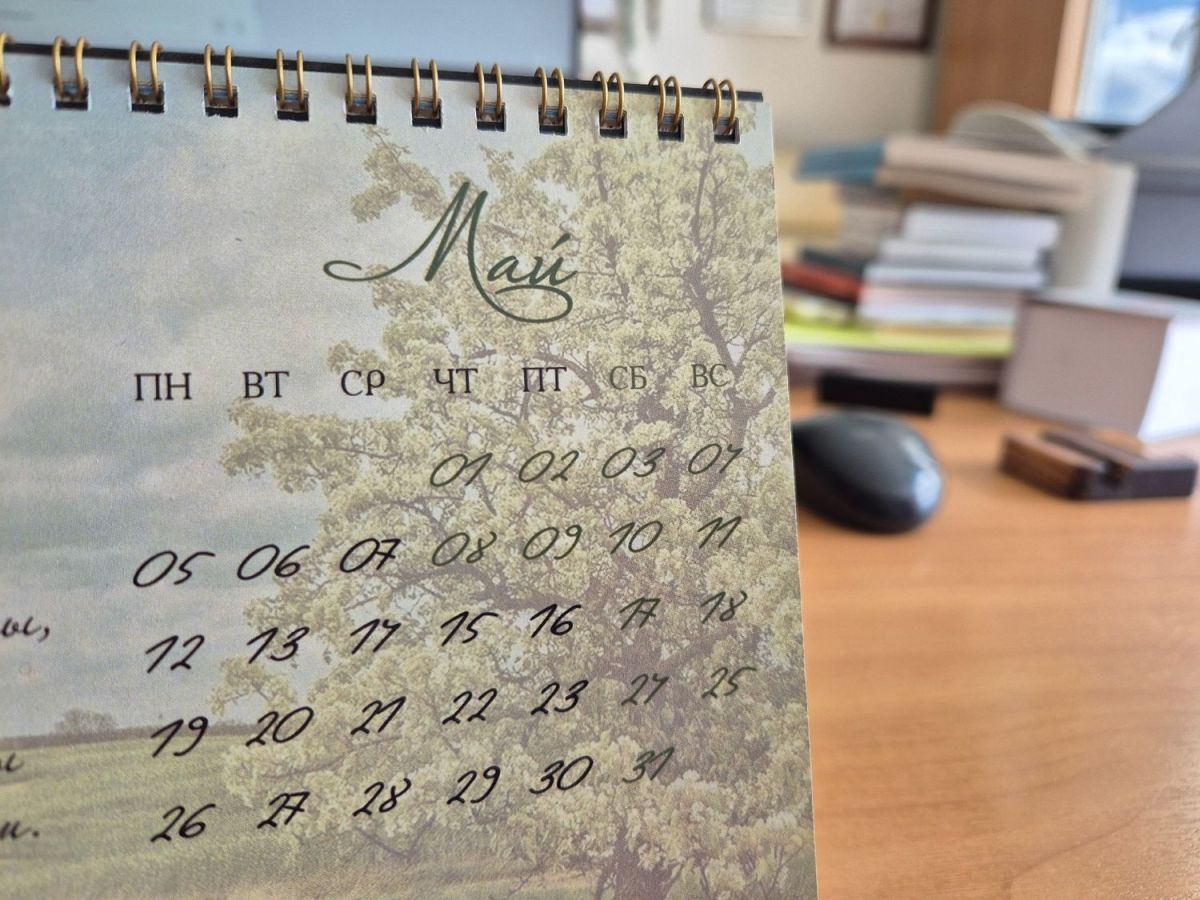 Май
ПН ВТ СР ЧТ ПТ СБ ВС
01 02 03 04
05 06 07 08 09 10 11
ы,
12 13 14 15 16 17 18
19 20 21 22 23 24 25
26 27 28 29 30 31